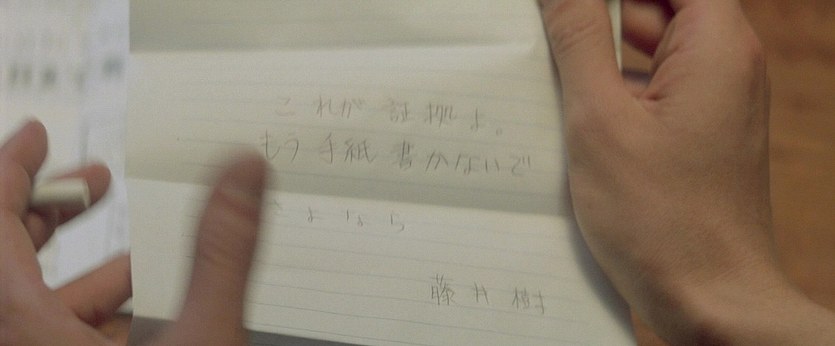 これが 証拠よ。
もう 手紙 書かないで
さよなら
藤井樹